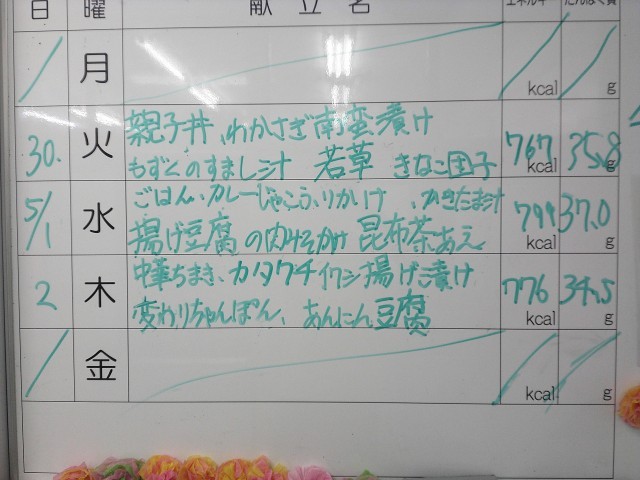 日 曜 献立名 エネルギー たんぱく質
月 kcal g
30. 火 親子丼、わかさぎ南蛮漬け 767 kcal 35.8 g
もずくのすまし汁 若草 きなこ団子
5/1 水 ごはん、カレーじゃこふりかけ、かきたま汁 799 kcal 37.0 g
揚げ豆腐の肉みそかけ 昆布茶あえ
2 木 中華ちまき、カタクチイワシ揚げ漬け 776 kcal 34.5 g
変わりちゃんぽん、あんにん豆腐
金 kcal g